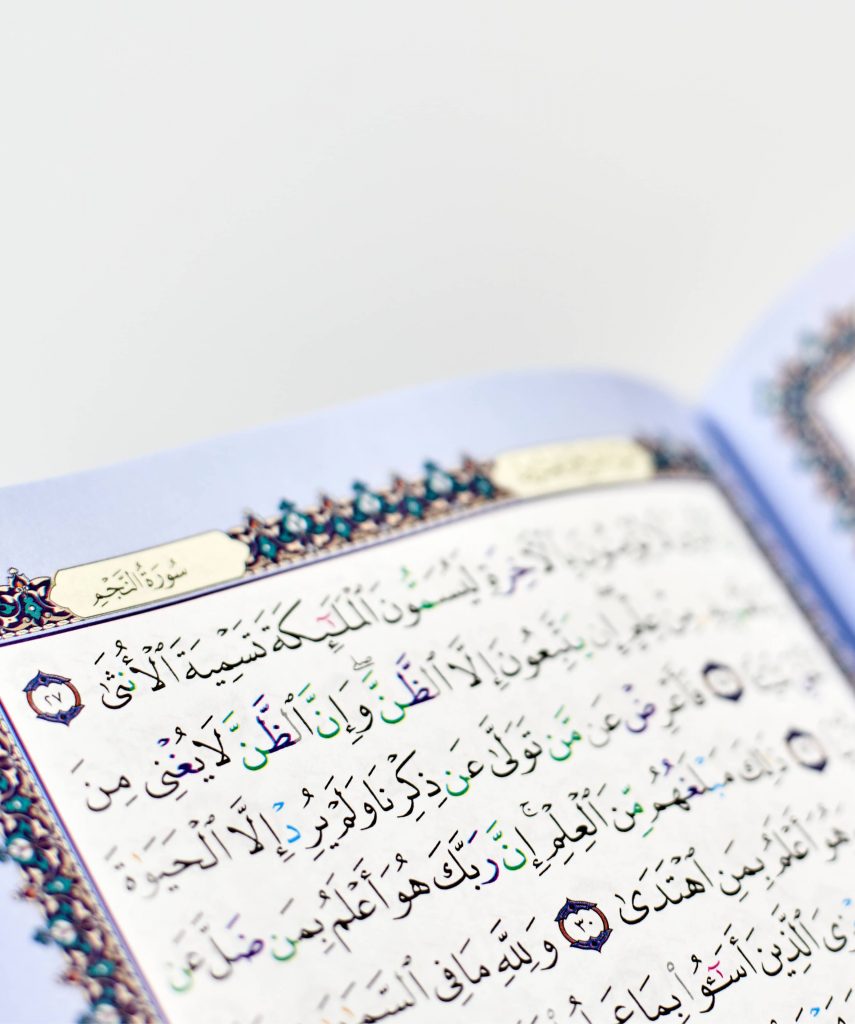 سُورَةُ النَّجْمِ
ٱلْأَخِرَةِ لَيُسَمُّونَ ٱلْمَلَٰٓئِكَةَ تَسْمِيَةَ ٱلْأُنثَىٰ ٢٧
مِنْ عِلْمٍ إِن يَتَّبِعُونَ إِلَّا ٱلظَّنَّ ۖ وَإِنَّ ٱلظَّنَّ لَا يُغْنِى مِنَ
فَأَعْرِضْ عَن مَّن تَوَلَّىٰ عَن ذِكْرِنَا وَلَمْ يُرِدْ إِلَّا ٱلْحَيَوٰةَ
ذَٰلِكَ مَبْلَغُهُم مِّنَ ٱلْعِلْمِ ۚ إِنَّ رَبَّكَ هُوَ أَعْلَمُ بِمَن ضَلَّ عَن
هُوَ أَعْلَمُ بِمَنِ ٱهْتَدَىٰ ٣٠ وَلِلَّهِ مَا فِى
ٱلَّذِينَ أَسَٰٓـُٔوا۟ بِمَا